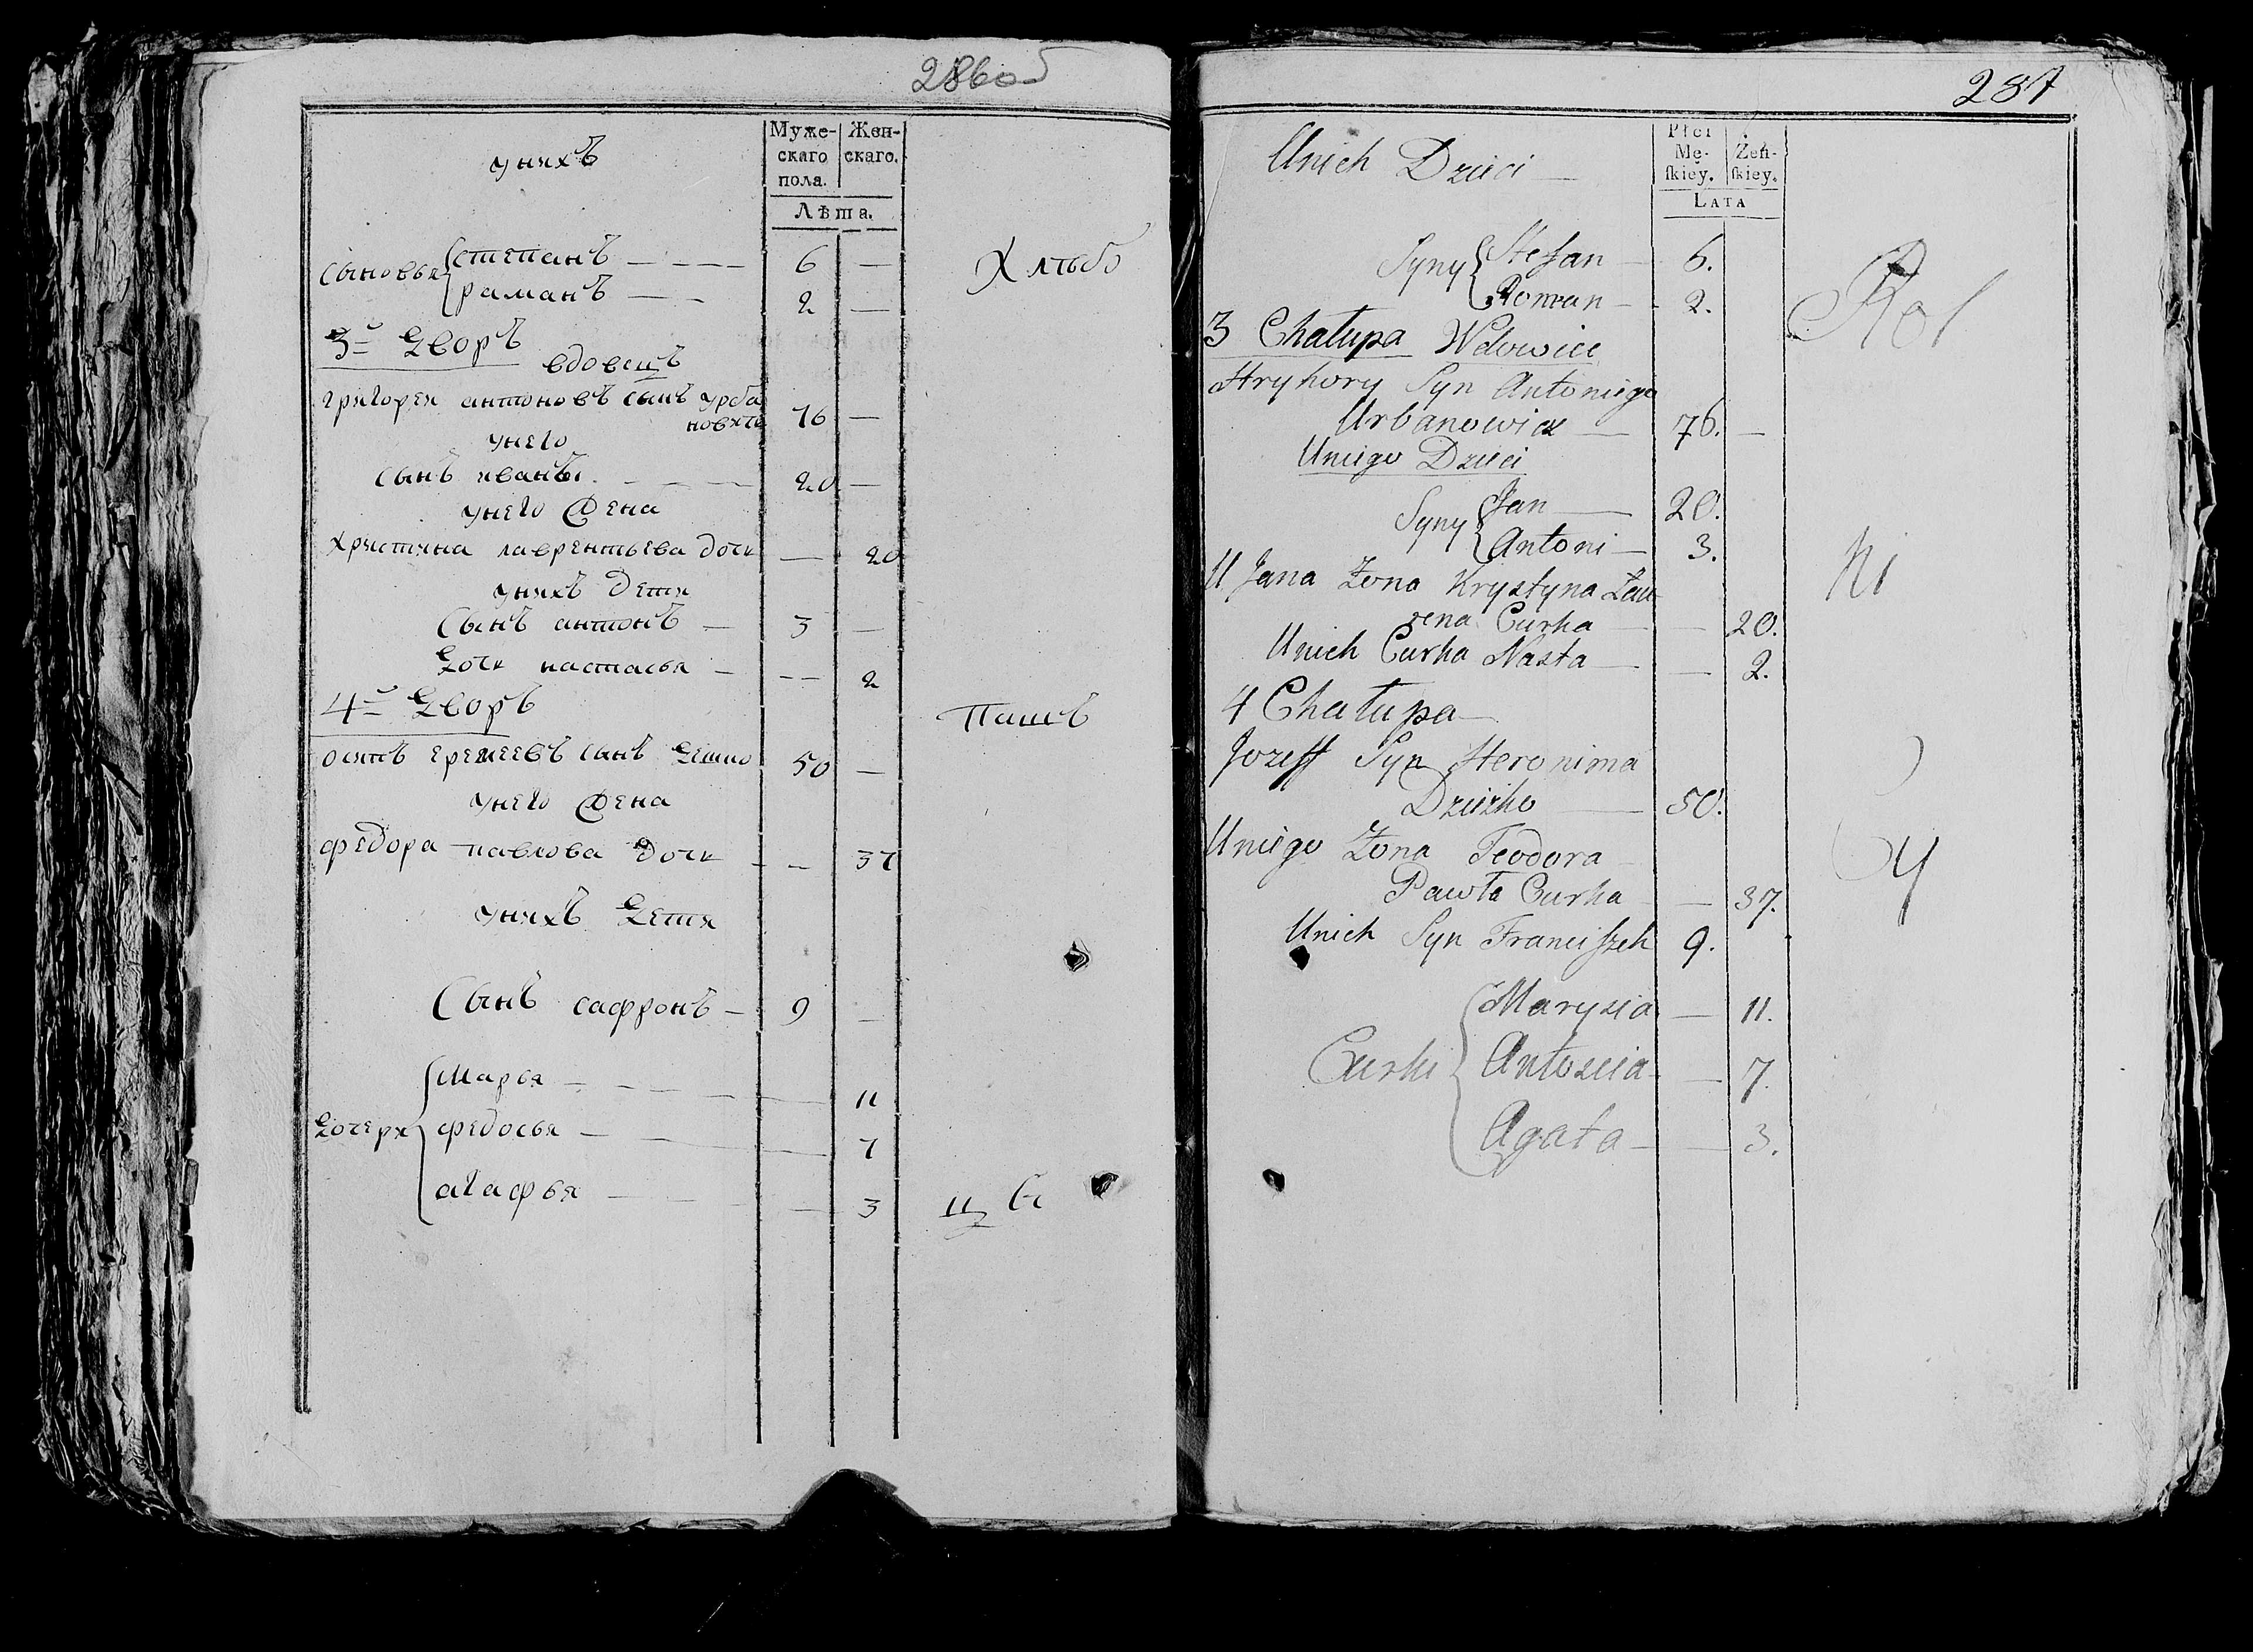 286об
Муже-
скаго
пола.
Жен-
скаго.
Лѣта.
унихъ
сыновья
степанъ 6 —
раманъ 2 —
Хлѣбо
3й Дворъ
вдовецъ
григорей антоновъ сынъ урба
новичъ 76 —
унего
сынъ иванъ 20 —
унего жена
христина лаврентьева дочь — 20
унихъ дети
сынъ антонъ — 3 —
дочь настасья — -- 2
4й Дворъ
Пашѣ
осипъ еремеевъ сынъ 50 —
унего жена
федора павлова дочь — 37
унихъ дети
сынъ сафронъ — 9 —
дочери
марья — 11
федосья — 7
агафья — 3
цы
287
Płci
Mę-
ſkiey.
Żeń-
ſkiey.
Lata
Unich Dzieci —
Syny
Stefan — 6.
Roman — 2.
Rol
3 Chałupa Wdowiec
Hryhory Syn Antoniego
Urbanowicz — 76. —
Uniego Dzieci
Syny
Jan — 20.
Antoni — 3.
U Jana Żona Krystyna Ław
rena Curka — — 20.
ni
Unich Curka Nasta — — 2.
4 Chałupa —
Jozeff Syn Heronima
Dzieżko — 50.
Uniego Żona Teodora —
Pawła Curka — — 37.
cy
Unich Syn Franciſzek 9.
Curki
Marysia — 11.
Antosia — — 7.
Agata — — 3.